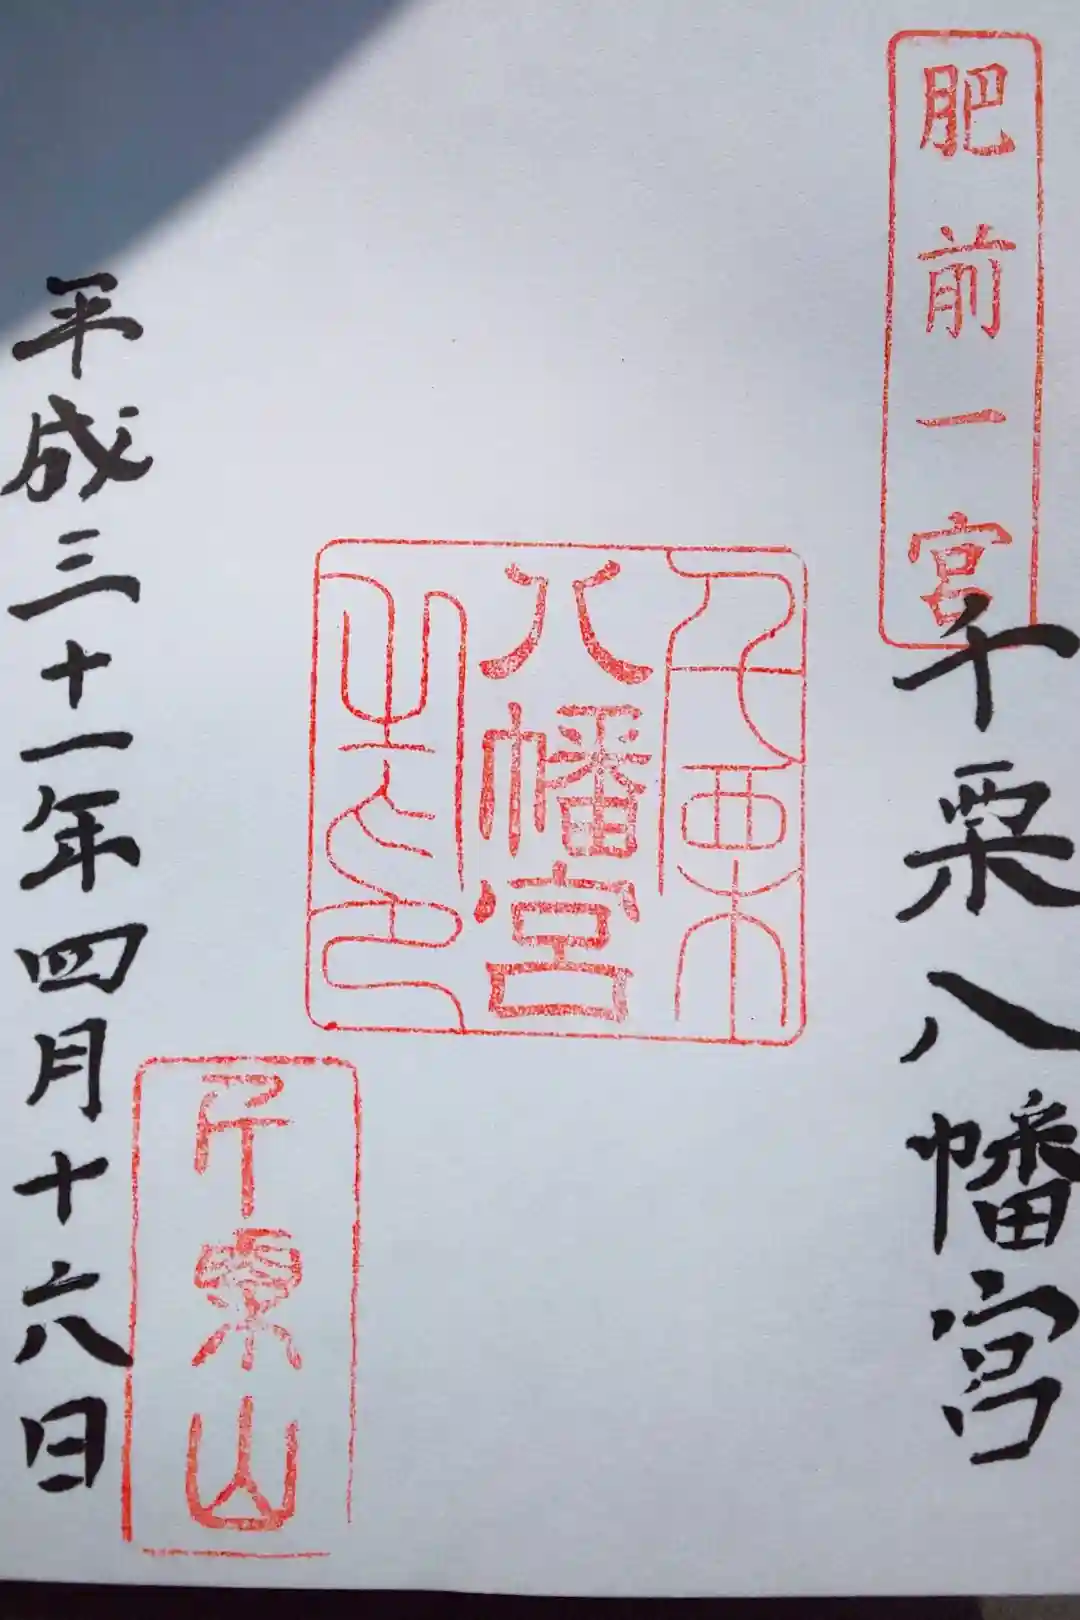 肥前一宮
千栗八幡宮
千栗
八幡宮
之印
千栗山
平成三十一年四月十六日